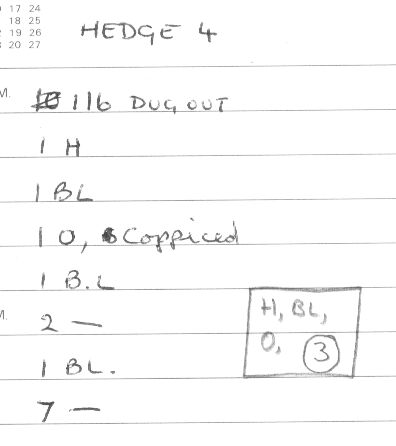 17 24
18 25
19 26
20 27
HEDGE 4
116 DUG OUT
1 H
1 BL
1 O, Coppiced
1 B.L
2 —
1 BL.
7 —
H, BL,
O, 3